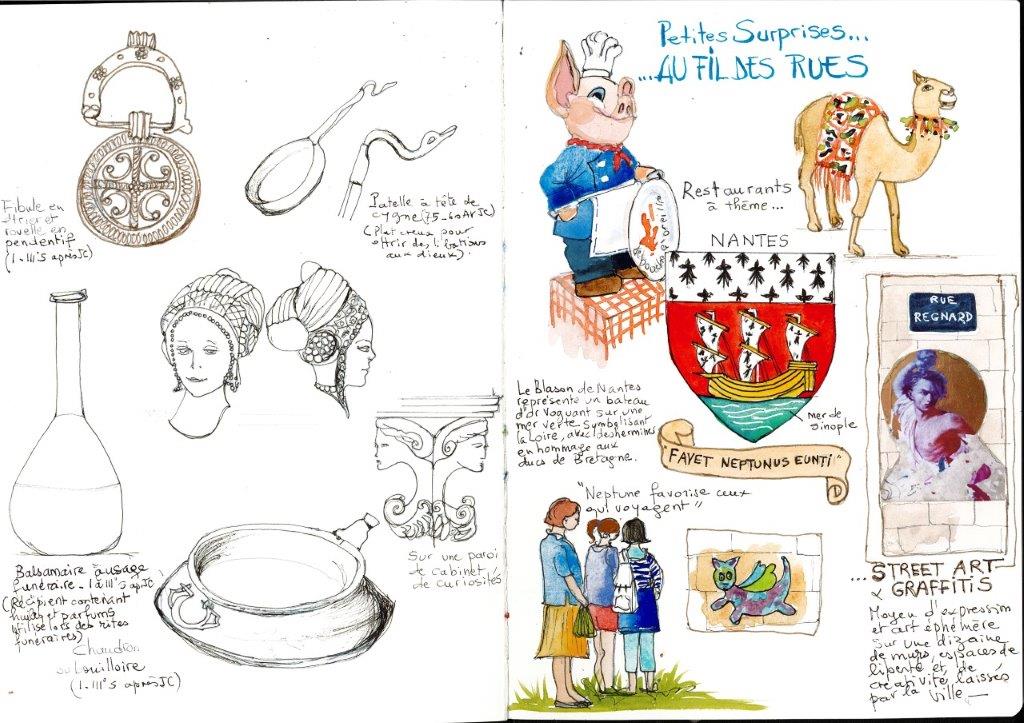 Fibule en
et
rouelle en
pendentif
(I-III°s après JC)
Patelle à tête de
cygne (75-60 Av JC)
(Plat creux pour
offrir des libations
aux dieux).
Balsamaire à usage
funéraire - I à III°s ap JC
(Récipient contenant
huiles et parfums
utilisé lors des rites
funéraires)
Chaudron
ou bouilloire
(I-III°s après JC)
Sur une paroi
de cabinet
de curiosités
Petites Surprises...
...AU FIL DES RUES
Restaurants
à thème...
NANTES
Le Blason de Nantes
représente un bateau
d'or voguant sur une
mer verte symbolisant
la Loire, avec des hermines
en hommage aux
ducs de Bretagne.
mer de
sinople
"FAVET NEPTUNUS EUNTI"
"Neptune favorise ceux
qui voyagent"
RUE
REGNARD
...STREET ART
& GRAFFITIS
Moyen d'expression
et art éphémère
sur une dizaine
de murs, espaces de
liberté et de
créativité laissés
par la ville_